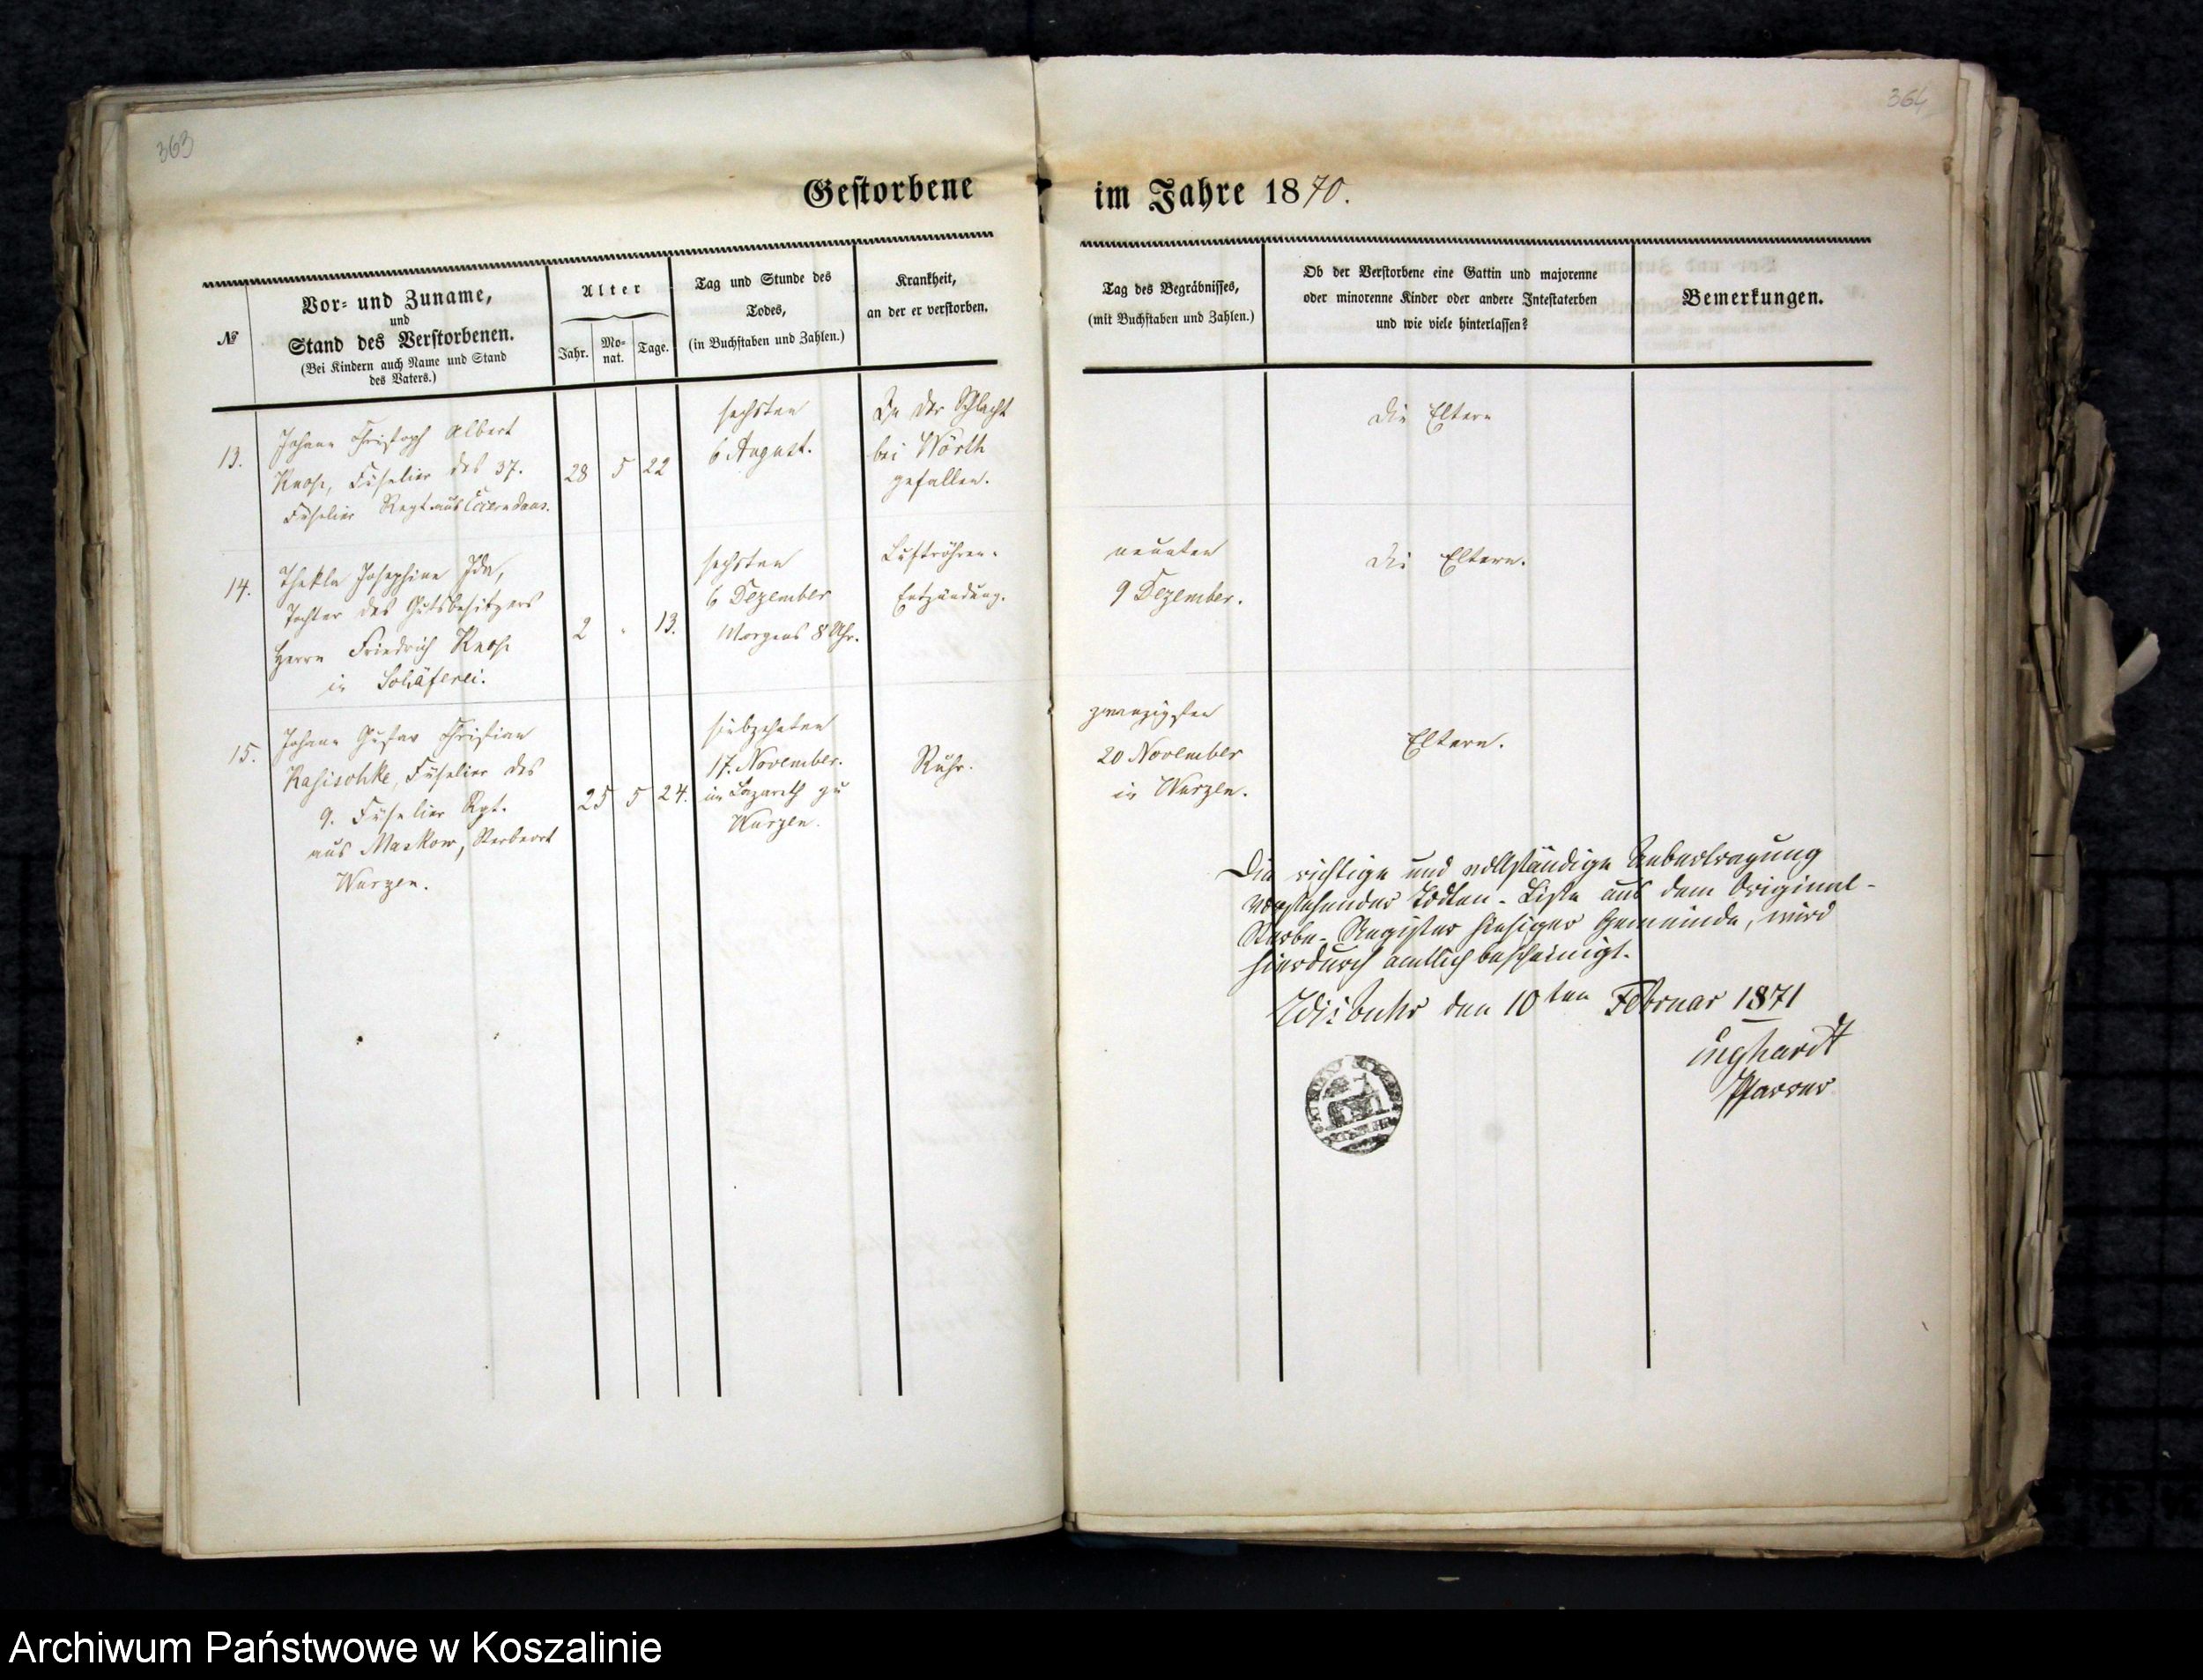 363
364
Gestorbene im Jahre 1870.
№
Vor- und Zuname,
und
Stand des Verstorbenen.
(Bei Kindern auch Name und Stand
des Vaters.)
Alter
Jahr.
Mo-
nat.
Tage.
Tag und Stunde des
Todes,
(in Buchstaben und Zahlen.)
Krankheit,
an der er verstorben.
Tag des Begräbnisses,
(mit Buchstaben und Zahlen.)
Ob der Verstorbene eine Gattin und majorenne
oder minorenne Kinder oder andere Intestaterben
und wie viele hinterlassen?
Bemerkungen.
13.
Johann Christoph Albert
Füselier des 37.
Füselier Regt aus
28 5 22
sechsten
6 August.
In der Schlacht
bei Wörth
gefallen.
Die Eltern
14.
Thekla Josephine Ida,
Tochter des Gutsbesitzers
Herrn Friedrich
in Schäferei.
2 - 13.
sechsten
6 Dezember
Morgens 8 Uhr.
Luftröhren-
Entzündung.
neunten
9 Dezember.
Die Eltern.
15.
Johann Gustav Christian
Füselier des
9. Füselier Rgt.
aus Maskow, Sterbeort
Wurzen.
25 5 24.
siebzehnten
17. November.
im Lazareth zu
Wurzen.
Ruhr.
zwanzigsten
20 November
in Wurzen.
Eltern.
Die richtige und vollständige Uebertragung
vorstehender Todten-Liste aus dem Original-
Sterbe-Register hiesiger Gemeinde, wird
hierdurch amtlich bescheinigt.
den 10ten Februar 1871
Pfarrer
Archiwum Państwowe w Koszalinie